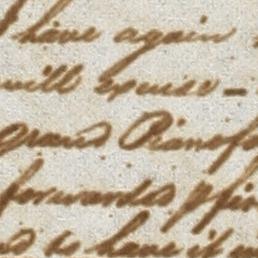 I have again
will excuse –
grand Pianofo
forwarded p fir
to have it